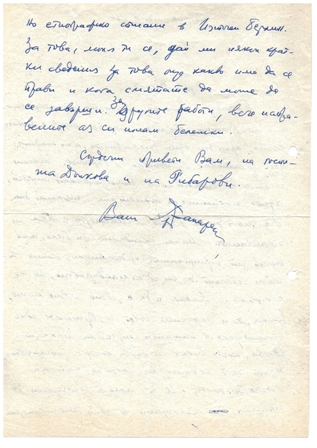 но етнографско списание в Източен Берлин.
За това, моля ти се, дай ми някои крат-
ки сведения за това още какво има да се
прави и кога смятате да може да
се завърши. За другите работи, вече напра-
вените аз си имам бележки.
Сърдечни привети Вам, на
жа Дънкова и на Рибарови.
Ваш